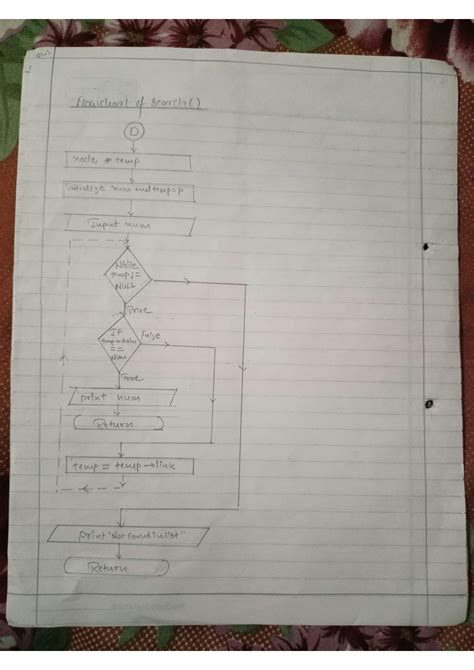 Flowchart of search()
D
node * temp
initialize num and temp=p
Input num
While
temp !=
NULL
True
IF
temp→data
==
num
False
True
print num
Return
temp = temp→link
print "Not found in list"
Return